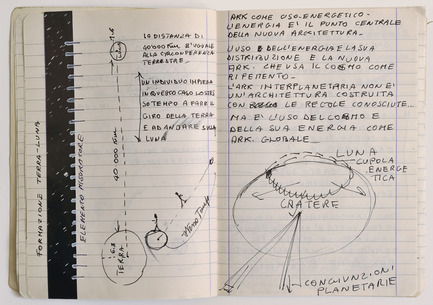 FORMAZIONE TERRA-LUNA
ELEMENTO MISURATORE
40 000 Km
TERRA
LA DISTANZA DI
40000 Km E' UGUALE
ALLA CIRCONFERENZA
TERRESTRE.
UN INDIVIDUO IMPIEGA
IN QUESTO CASO LO STES
SO TEMPO A FARE IL
GIRO DELLA TERRA
E AD ANDARE SULLA
LUNA
STESSO TEMPO
ARK COME USO-ENERGETICO-
L'ENERGIA E' IL PUNTO CENTRALE
DELLA NUOVA ARCHITETTURA-
L'USO DELL'ENERGIA E LA SUA
DISTRIBUZIONE E LA NUOVA
ARK. CHE USA IL COSMO COME
RIFERIMENTO-
L'ARK INTERPLANETARIA NON E'
UN'ARCHITETTURA COSTRUITA
CON LE REGOLE CONOSCIUTE...
MA E' L'USO DEL COSMO E
DELLA SUA ENERGIA COME
ARK. GLOBALE-
LUNA
CUPOLA
ENERGE
TICA
CRATERE
CONGIUNZIONI
PLANETARIE